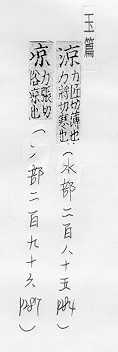 玉篇
涼力匠切薄也力將切寒也（水部二百八十五p284）
凉力張切俗涼也（冫部二百九十六p287）